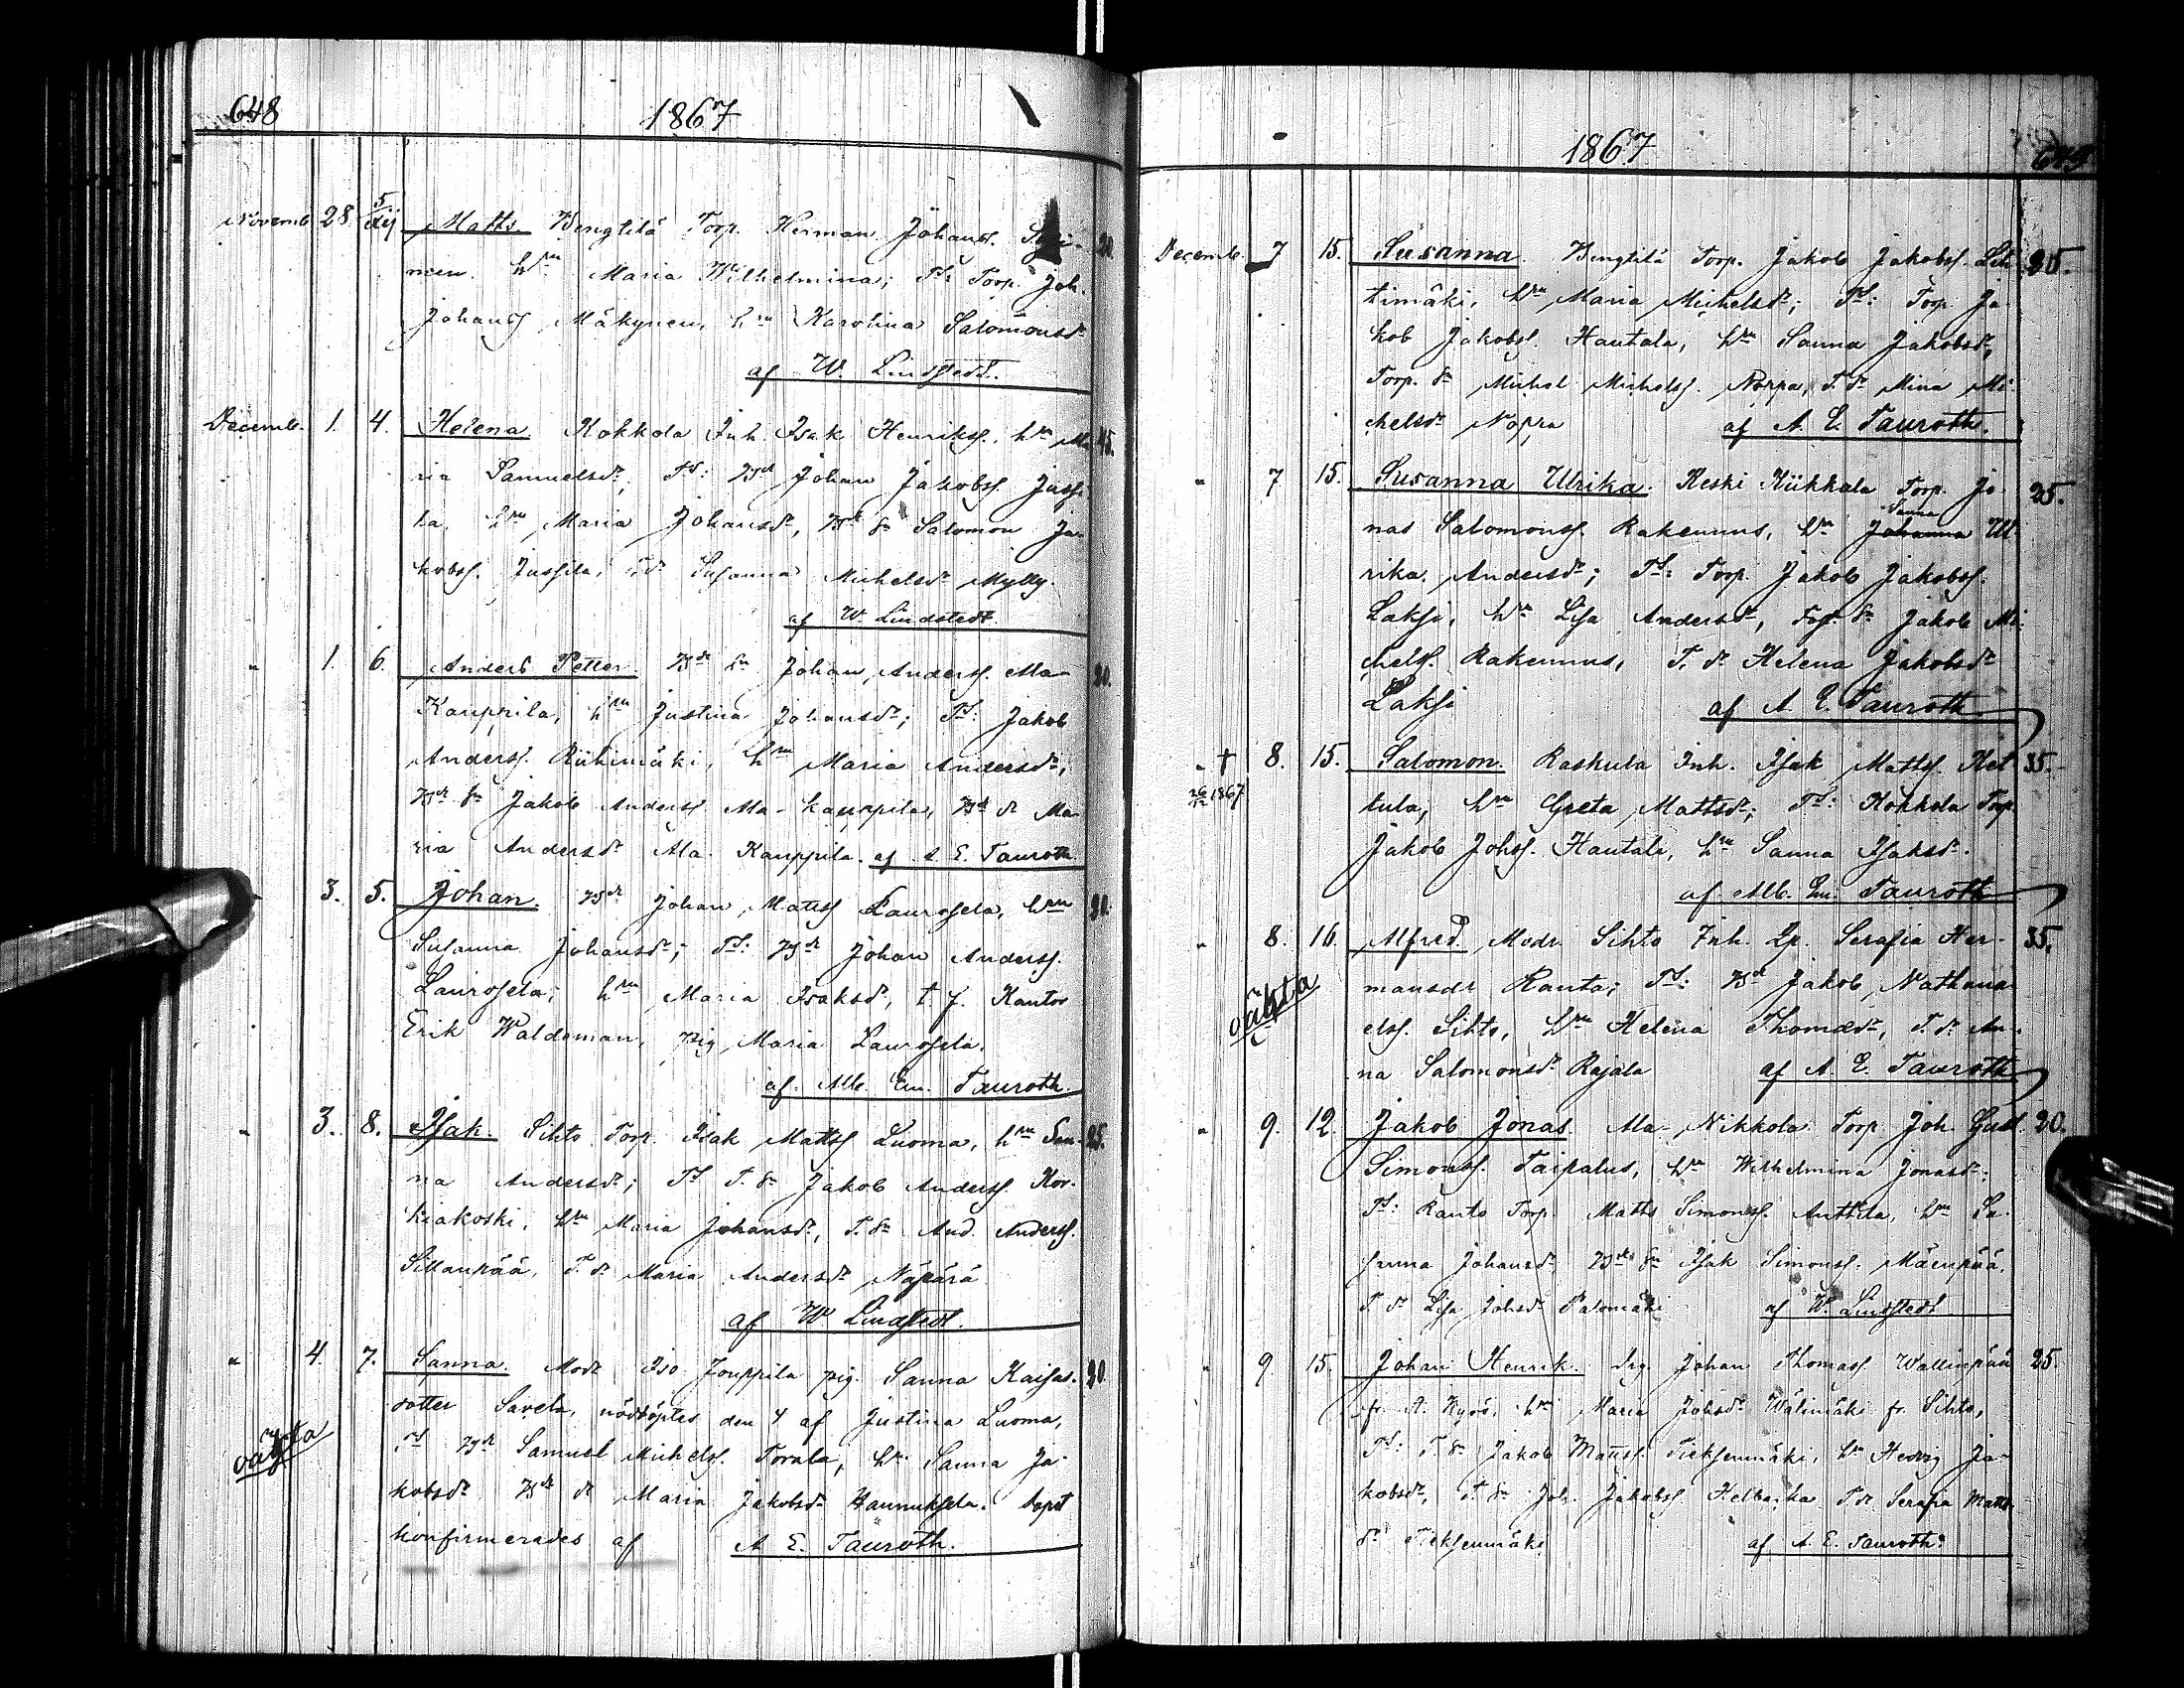 648
1867
Novemb. 28 5/xij Matts. Bengtilä Torp. Herman Johanss.
nen. hu Maria Wilhelmina; Ts: Torp. Joh.
Johanss Mäkynen, hu Karolina Salomonsdr
af W. Lindstedt.
Decemb. 1. 4. Helena Kokkola Inh. Isak Henrikss. hu Ma 45.
ria Samuelsdr; Ts: Bd Johan Jakobss. Jussi
la, hu Maria Johansdr, Bd Sn Salomon Ja-
kobss. Jussila, Susanna Michelsdr Mylly.
af W. Lindstedt
" 1. 6. Anders Petter. Bd Sn Johan Anderss. Ala- 20.
Kauppila, hu Justina Johansdr; Ts: Jakob
Anderss. Riihimäki, hu Maria Andersdr,
Bde Sn Jakob Anderss Ala-Kauppila, Bd dr Ma
ria Andersdr Ala-Kauppila. af A. E. Tauroth
3. 5. Johan. Bd Johan Matss Laurosela, hun
Susanna Johansdr; Ts: Bd Johan Anderss.
Laurosela, hu Maria Isaksdr, t. f. Kantor
Erik Waldeman, pig Maria Laurosela.
af. Alb. Em. Tauroth.
" 3. 8. Isak. Sihto Torp. Isak Mattss Luoma, hu San- 25.
na Andersdr; Ts T. Sn Jakob Anderss. Kor-
kiakoski, hu Maria Johansdr, T. Sn And. Anderss.
Sillanpää, T. dr Maria Andersdr Näpärä
af W Lindstedt.
" 4. 7. Sanna. Modr Iso Jouppila pig. Sanna Kaisas- 20.
dotter Savela, nöddöptes den 4 af Justina Luoma,
oäkta Ts Bd Samuel Michelss. Torala, hu Sanna Ja-
kobsdr Bd dr Maria Jakobsdr Hannuksela. Dopet
konfirmerades af A. E. Tauroth.
1867
649
Decemb. 7 15. Susanna. Bengtilä Torp. Jakob Jakobss. Leh
timäki, hu Maria Michelsdr; Ts: Torp. Ja-
kob Jakobss. Hautala, hu Sanna Jakobsdr,
Torp. Sn Michel Michelss. Noppa, T. dr Mina Mi
chelsdr Noppa af A. E. Tauroth.
" 7 15. Susanna Ulrika. Keski Kiikkala Torp. Jo- 25.
Sanna
nas Salomonss. Rakennus, hu Johanna Ul-
rika Andersdr; Ts: Torp. Jakob Jakobss.
Laksi, hu Lisa Andersdr, Torp. Sn Jakob Mi
chelss. Rakennus, T. dr Helena Jakobsdr
Laksi af A. E. Tauroth
" † 8. 15. Salomon. Raskula Inh. Isak Matss. Ket 35.
26/12 1867 tula, hu Greta Mattsdr; Ts: Kokkola Torp.
Jakob Johss. Hautala, hu Sanna Isaksdr.
af. Alb. Em. Tauroth
" 8. 16. Alfred. Modr. Sihto Inh. Serafia Her- 35.
oäkta mansdr Ranta; Ts: Bd Jakob Nathana
elss. Sihto, hu Helena Thomædr, T. dr An-
na Salomonsdr Rajala af A. E. Tauroth
" 9. 12. Jakob Jonas. Ala-Nikkola Torp Joh. Gust. 20.
Simonss. Taipalus, hu Wilhelmina Jonasdr;
Ts: Ranto Torp. Matts Simonss Anttila, hu Su-
sanna Johansdr Bde Sn Isak Simonss. Mäenpää,
T. dr Lisa Johsdr Palomäki af W. Lindstedt
" 9 15. Johan Henrik. drg. Johan Thomass Wallinpää 25.
fr. A. Kyro, hu Maria Johsdr Wälimäki fr. Sihto,
Ts: T. Sn Jakob Matss. Tiekssenmäki, hu Hedvig Ja-
kobsdr, T. Sn Joh. Jakobss T. dr Serafia Matts-
dr af A. E. Tauroth.